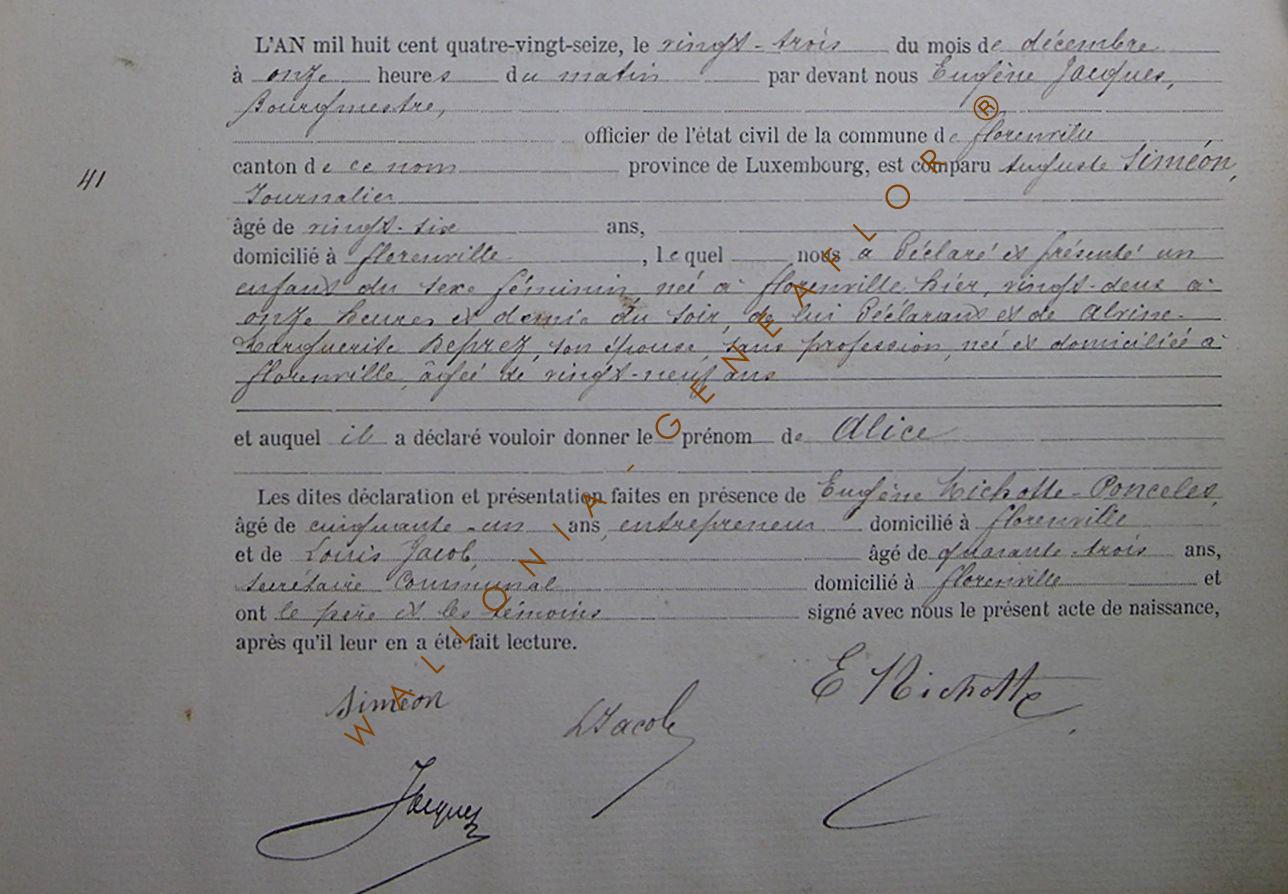 L'AN mil huit cent quatre-vingt-seize, le vingt-trois du mois de décembre
à onze heures du matin par devant nous Eugène Jacques,
Bourgmestre,
officier de l'état civil de la commune de florenville
canton de ce nom province de Luxembourg, est comparu Auguste Siméon,
41
Journalier
âgé de vingt-six ans,
domicilié à florenville, lequel nous a déclaré et présenté un
enfant du sexe féminin née à florenville hier, vingt-deux à
onze heures et demie du soir, de lui déclarant et de
Marguerite Deprez, son épouse, sans profession, née et domiciliée à
florenville, âgée de vingt-neuf ans
et auquel il a déclaré vouloir donner le prénom de Alice
Les dites déclaration et présentation faites en présence de Eugène Michotte-Poncelet,
âgé de cinquante-un ans, entrepreneur domicilié à florenville
et de Louis Jacob, âgé de quarante-trois ans,
secrétaire Communal domicilié à florenville et
ont le père et les témoins signé avec nous le présent acte de naissance,
après qu'il leur en a été fait lecture.
Siméon LJacob E Michotte
Jacques
WALLONIA-GENEAFLOR®